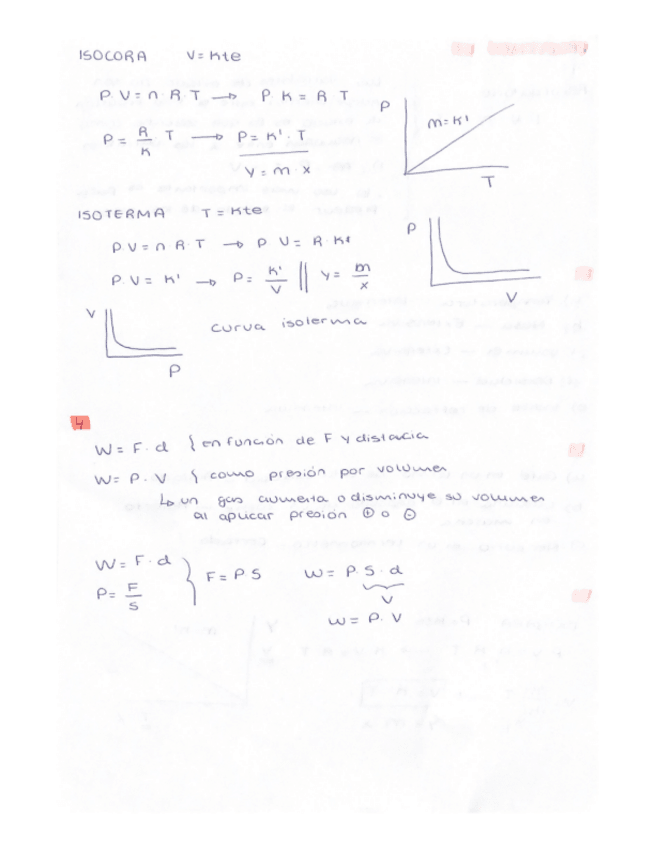 ISOCORA V= Kte
P. V = n. R. T → P. K = R T
P = R/K T → P = K'. T
Y = m. x
P
m = K'
T
ISOTERMA T = Kte
P V = n R T → P V = R. Kt
P. V = K' → P = K'/V || Y = m/x
P
V
V
P
curva isoterma
4
W = F. d { en función de F y distacia
W = P. V { como presión por volumen
↳ un gas aumenta o disminuye su volumen
al aplicar presión ⊕ o ⊖
W = F. d
P = F/S
} F = P S
W = P. S. d
V
W = P. V